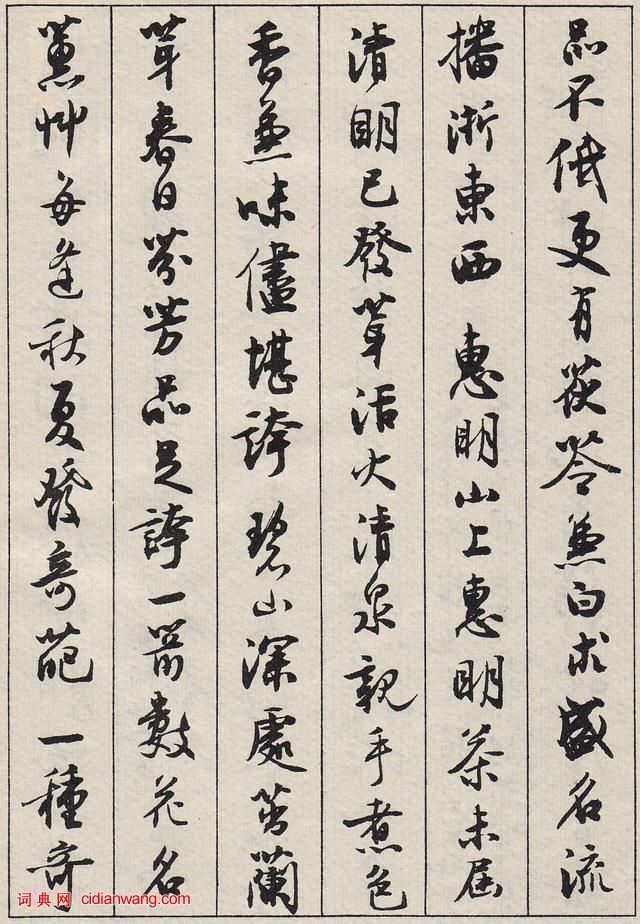 品不低更有茯苓兼白朮盛名流
播浙東西 惠明山上惠明茶未届
清明已發芽活火清泉親手煮色
香兼味儘堪誇 碧山深處苗蘭
芽春日芬芳品足誇一箭數花名
蕙艸每逢秋夏發奇葩 一種奇
词典网 cidianwang.com